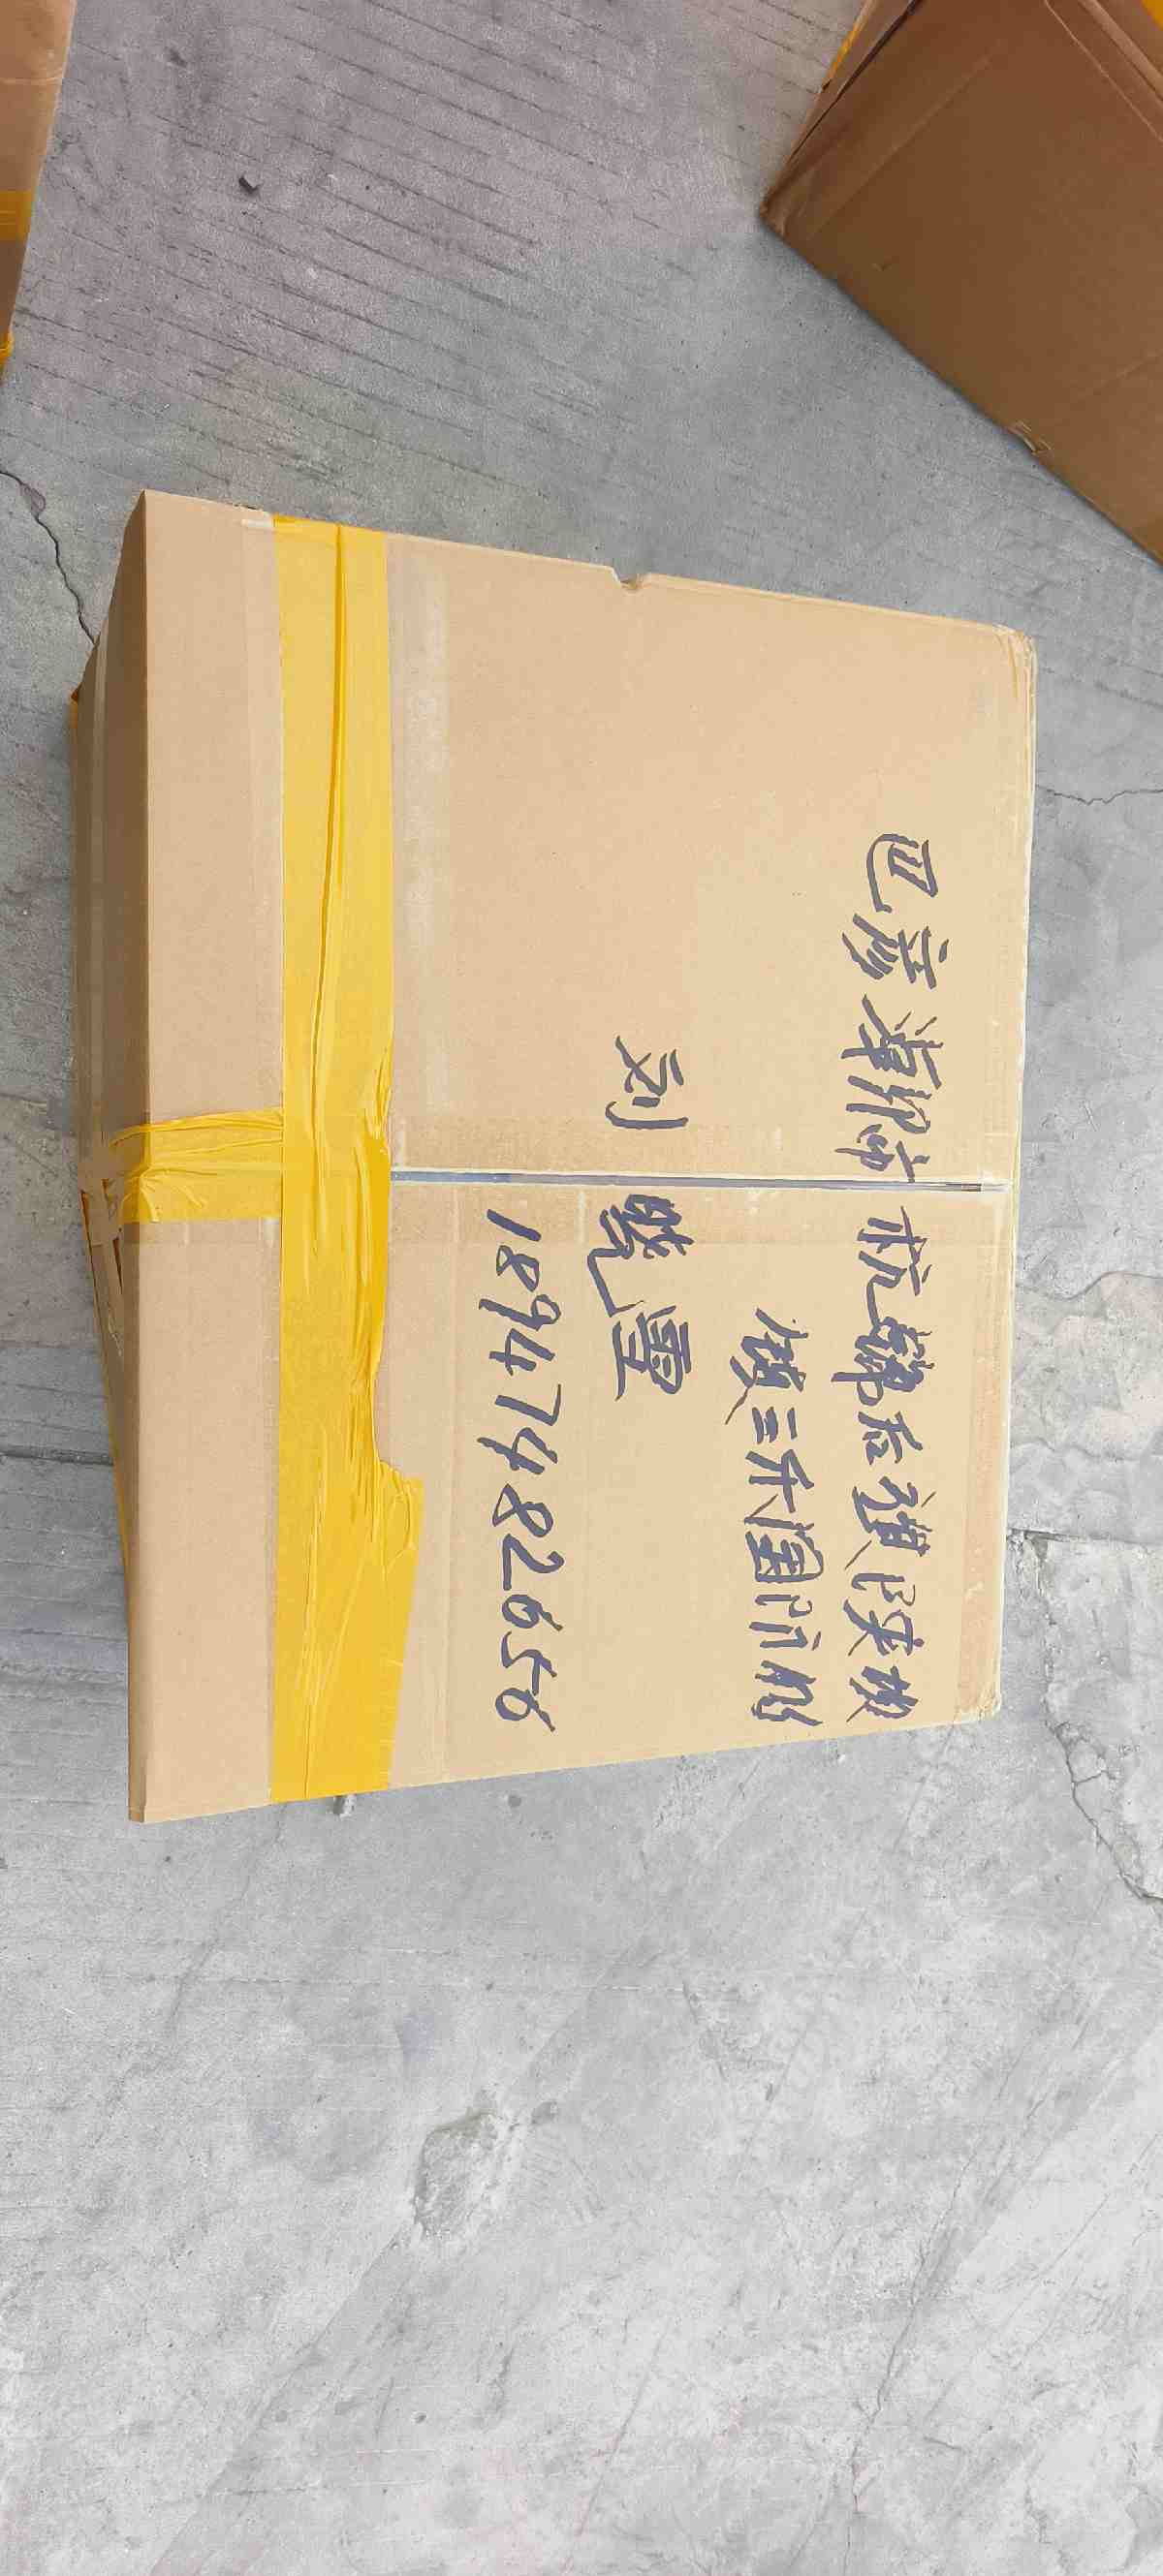 巴彦淖尔市杭锦后旗陕坝
镇三千国门船
刘晓雪
18947482656